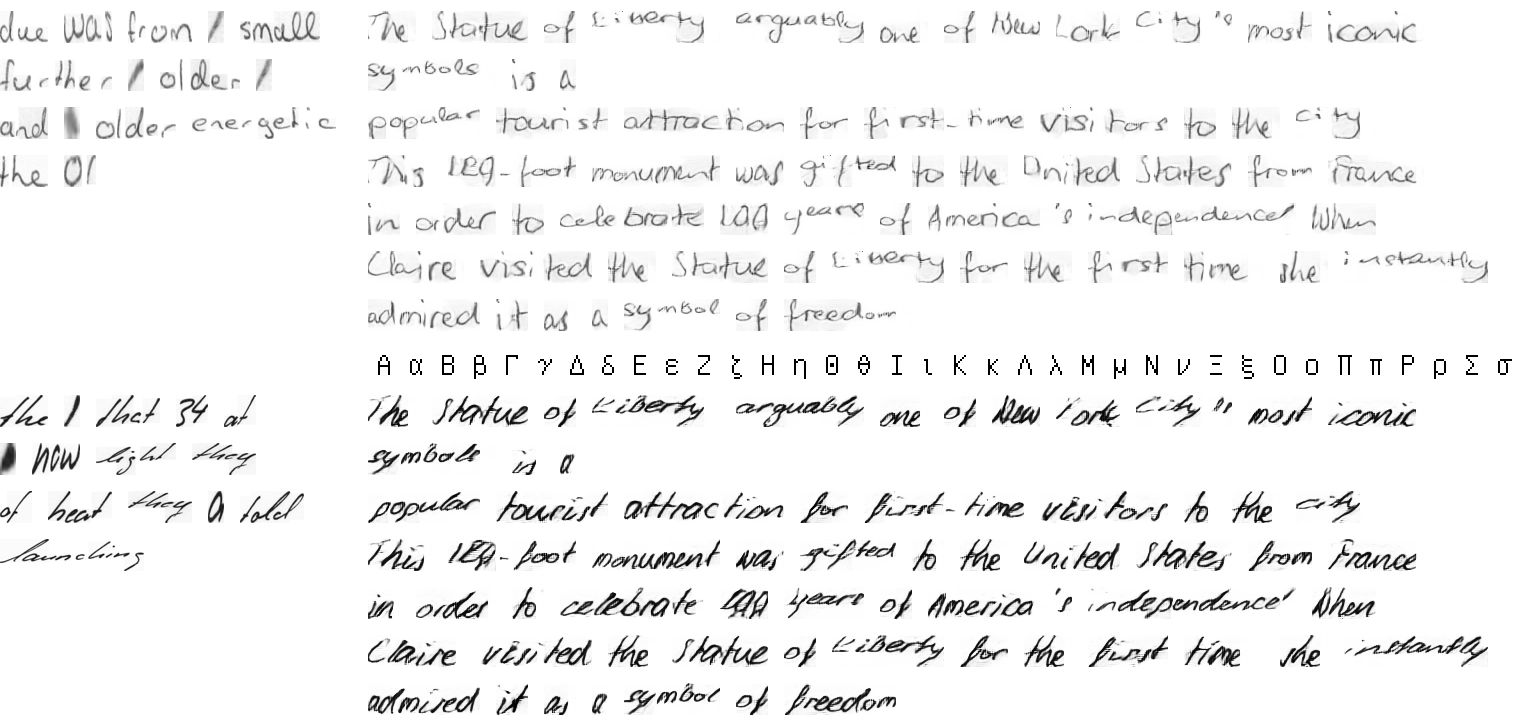 due was from / small
further / older /
and older energetic
the Ol
The Statue of Liberty arguably one of New Lork City's most iconic
symbols is a
popular tourist attraction for first-time visitors to the city
This foot monument was gifted to the United States from France
in order to celebrate years of America's independence' When
Claire visited the Statue of Liberty for the first time she instantly
admired it as a symbol of freedom
Α α Β β Γ γ Δ δ Ε ε Ζ ζ Η η Θ θ Ι ι Κ κ Λ λ Μ μ Ν ν Ξ ξ Ο ο Π π Ρ ρ Σ σ
the / that 34 at
now light they
of heat they a told
launching
The Statue of Liberty arguably one of New York City's most iconic
symbols is a
popular tourist attraction for first-time visitors to the city
This foot monument was gifted to the United States from France
in order to celebrate years of America's independence' When
Claire visited the Statue of Liberty for the first time she instantly
admired it as a symbol of freedom